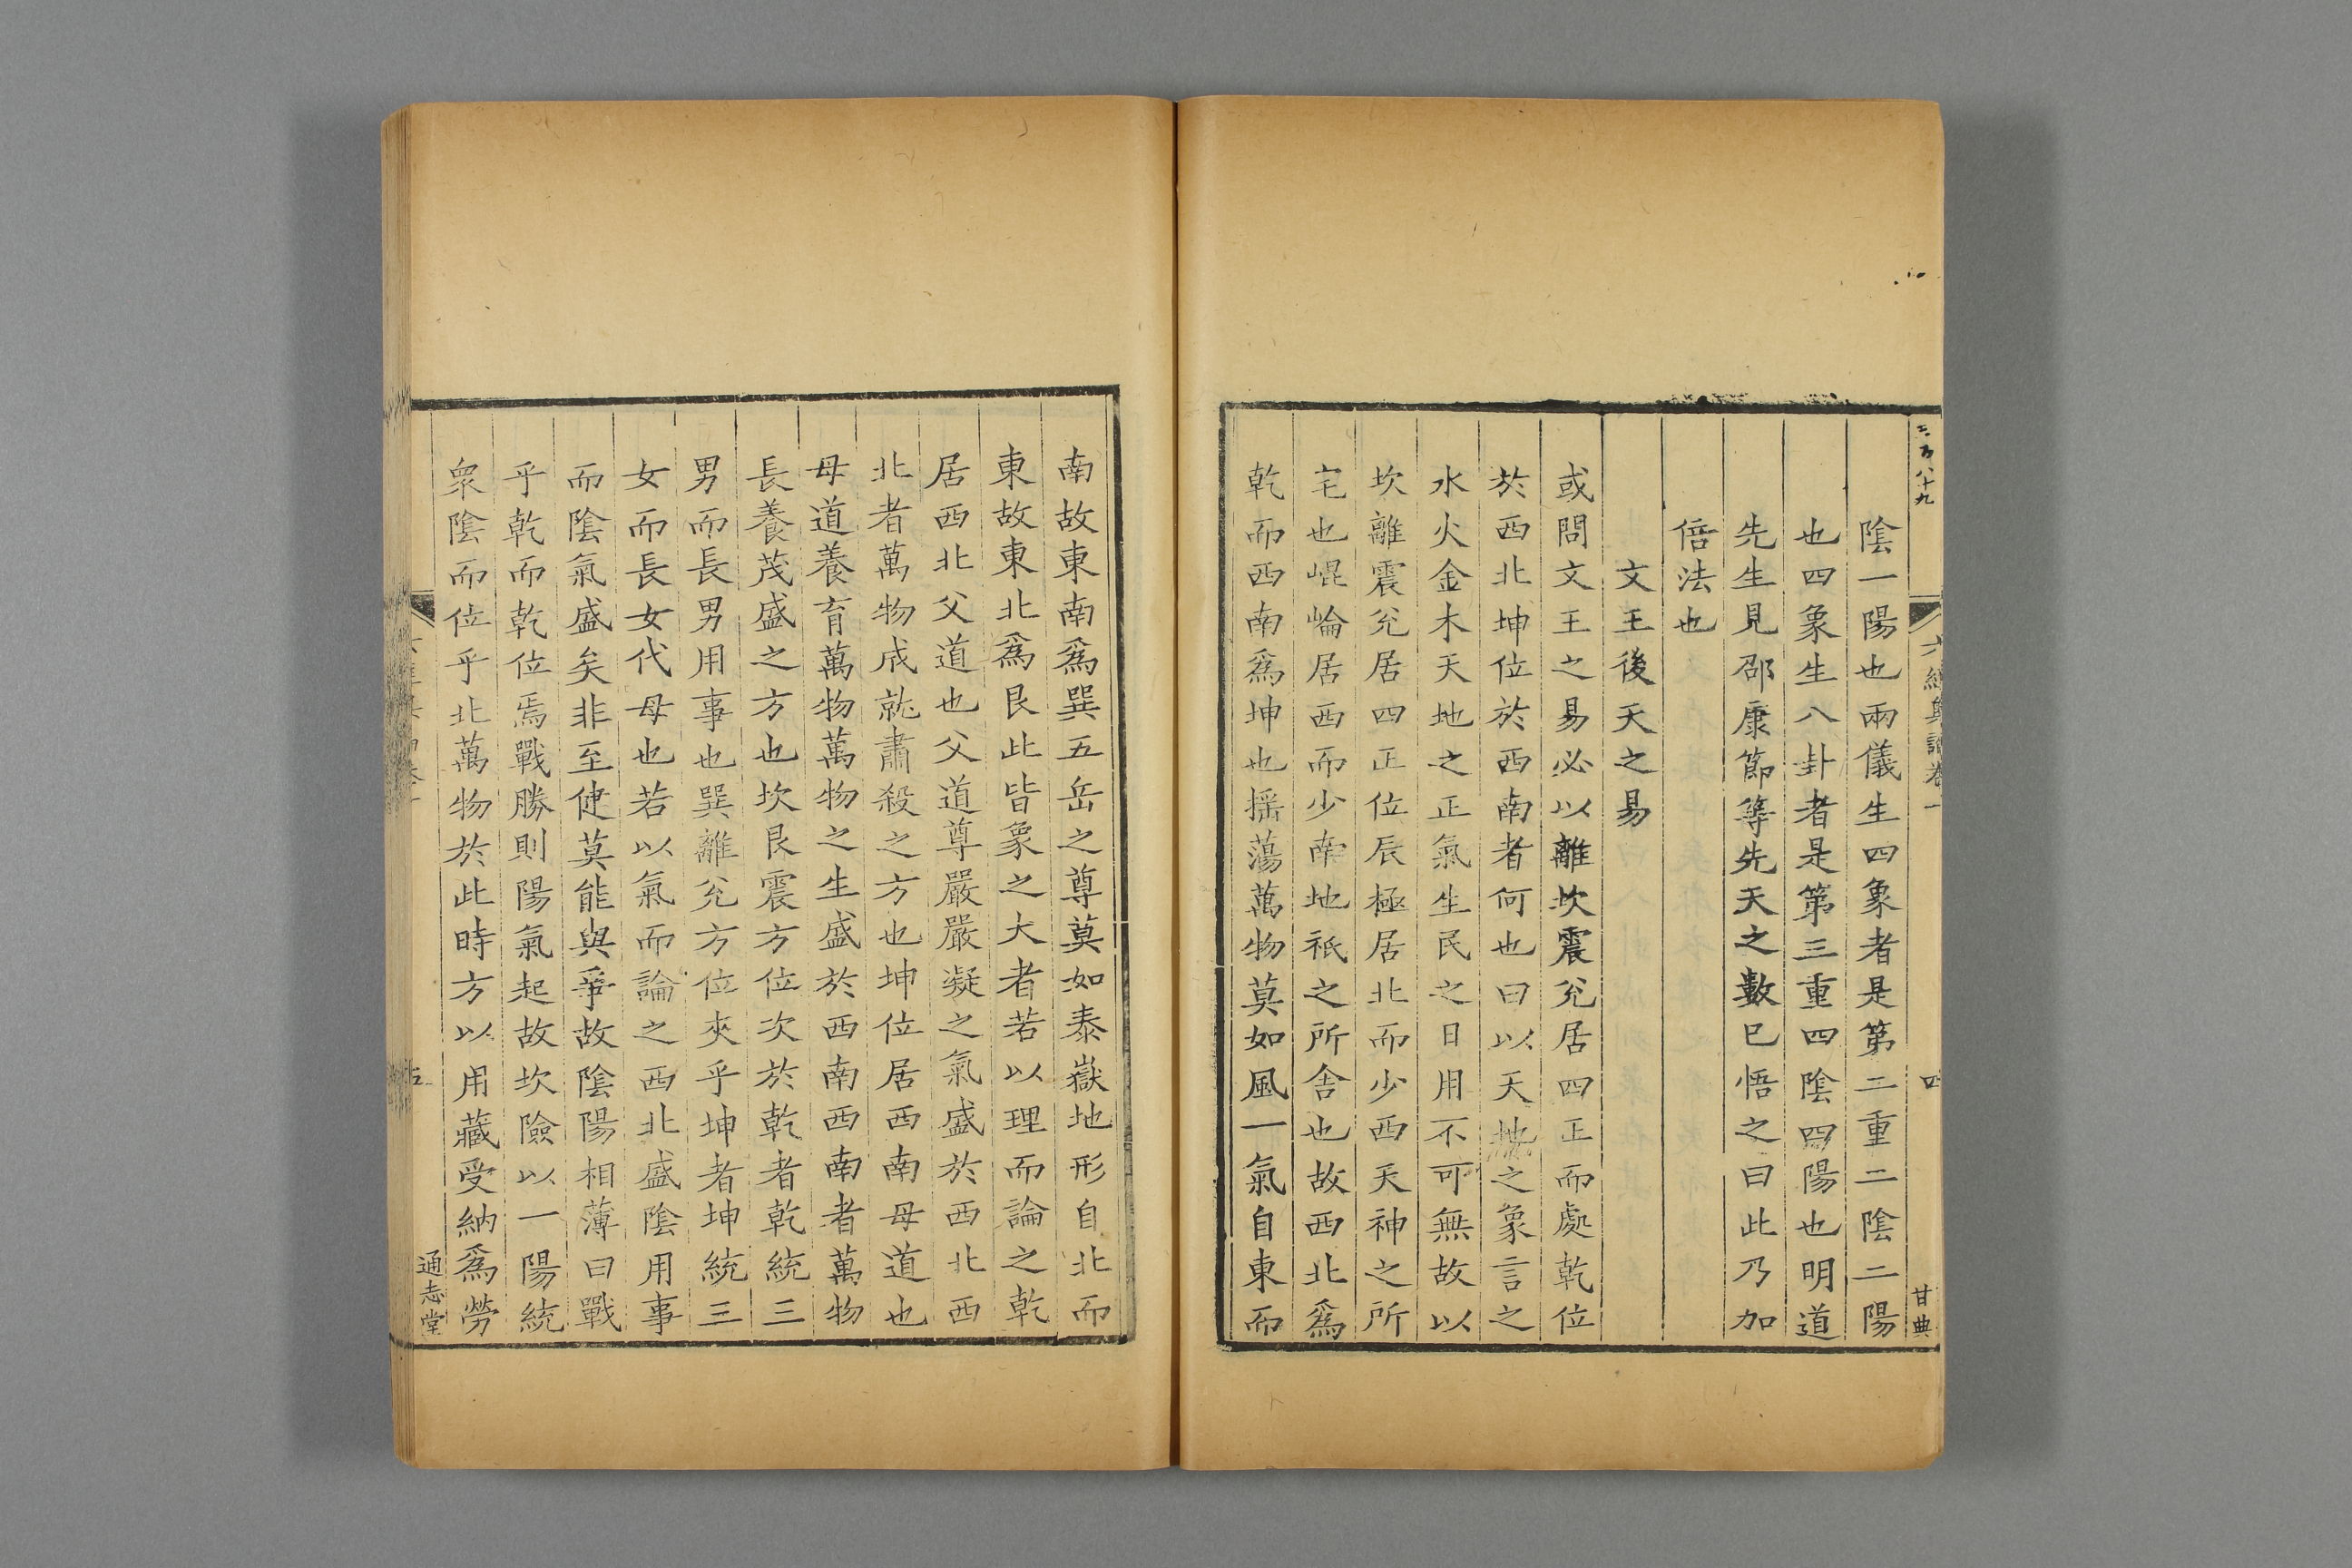 三百八十九
六經奧論卷一
四
甘典
陰一陽也兩儀生四象者是第二重二陰二陽
也四象生八卦者是第三重四陰四陽也明道
先生見邵康節等先天之數已悟之曰此乃加
倍法也
文王後天之易
或問文王之易必以離坎震兊居四正而處乾位
於西北坤位於西南者何也曰以天地之象言之
水火金木天地之正氣生民之日用不可無故以
坎離震兊居四正位辰極居北而少西天神之所
宅也崐崘居西而少南地祇之所舍也故西北爲
乾而西南爲坤也揺蕩萬物莫如風一氣自東而
南故東南爲巽五岳之尊莫如泰嶽地形自北而
東故東北爲艮此皆象之大者若以理而論之乾
居西北父道也父道尊嚴嚴凝之氣盛於西北西
北者萬物成就肅殺之方也坤位居西南母道也
母道養育萬物萬物之生盛於西南西南者萬物
長養茂盛之方也坎艮震方位次於乾者乾統三
男而長男用事也巽離兊方位夾乎坤者坤統三
女而長女代母也若以氣而論之西北盛陰用事
而陰氣盛矣非至健莫能與爭故陰陽相薄曰戰
乎乾而乾位焉戰勝則陽氣起故坎險以一陽統
衆陰而位乎北萬物於此時方以用藏受納爲勞
五
通志堂